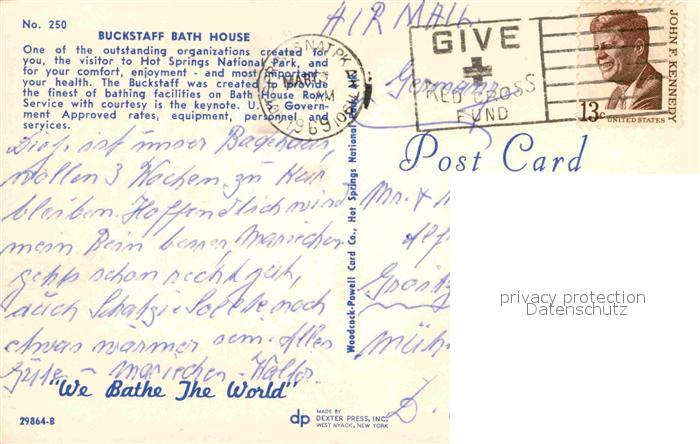 No. 250
BUCKSTAFF BATH HOUSE
One of the outstanding organizations created for
you, the visitor to Hot Springs National Park, and
for your comfort, enjoyment - and most important -
your health. The Buckstaff was created to provide
the finest of bathing facilities on Bath House Row.
Service with courtesy is the keynote. U. S. Govern-
ment Approved rates, equipment, personnel and
services.
Dies ist unser Badehaus,
wollen 3 Wochen zur Kur
bleiben. Hoffendlich wird
mein Bein besser, Mariechen
gehts schon recht gut,
auch Schatzi. Sollte noch
etwas wärmer sein. Alles
Gute - Mariechen - Walter.
"We Bathe The World"
29864-B
dp
MADE BY
DEXTER PRESS, INC.
WEST NYACK, NEW YORK
Woodcock-Powell Card Co., Hot Springs National Park, Ark.
AIR MAIL
Germany
NAT. PK.
MAR
AM
1969
GIVE
RED CROSS
FUND
JOHN F. KENNEDY
13c
UNITED STATES
Post Card
Mr. +
Müh
D.
privacy protection
Datenschutz